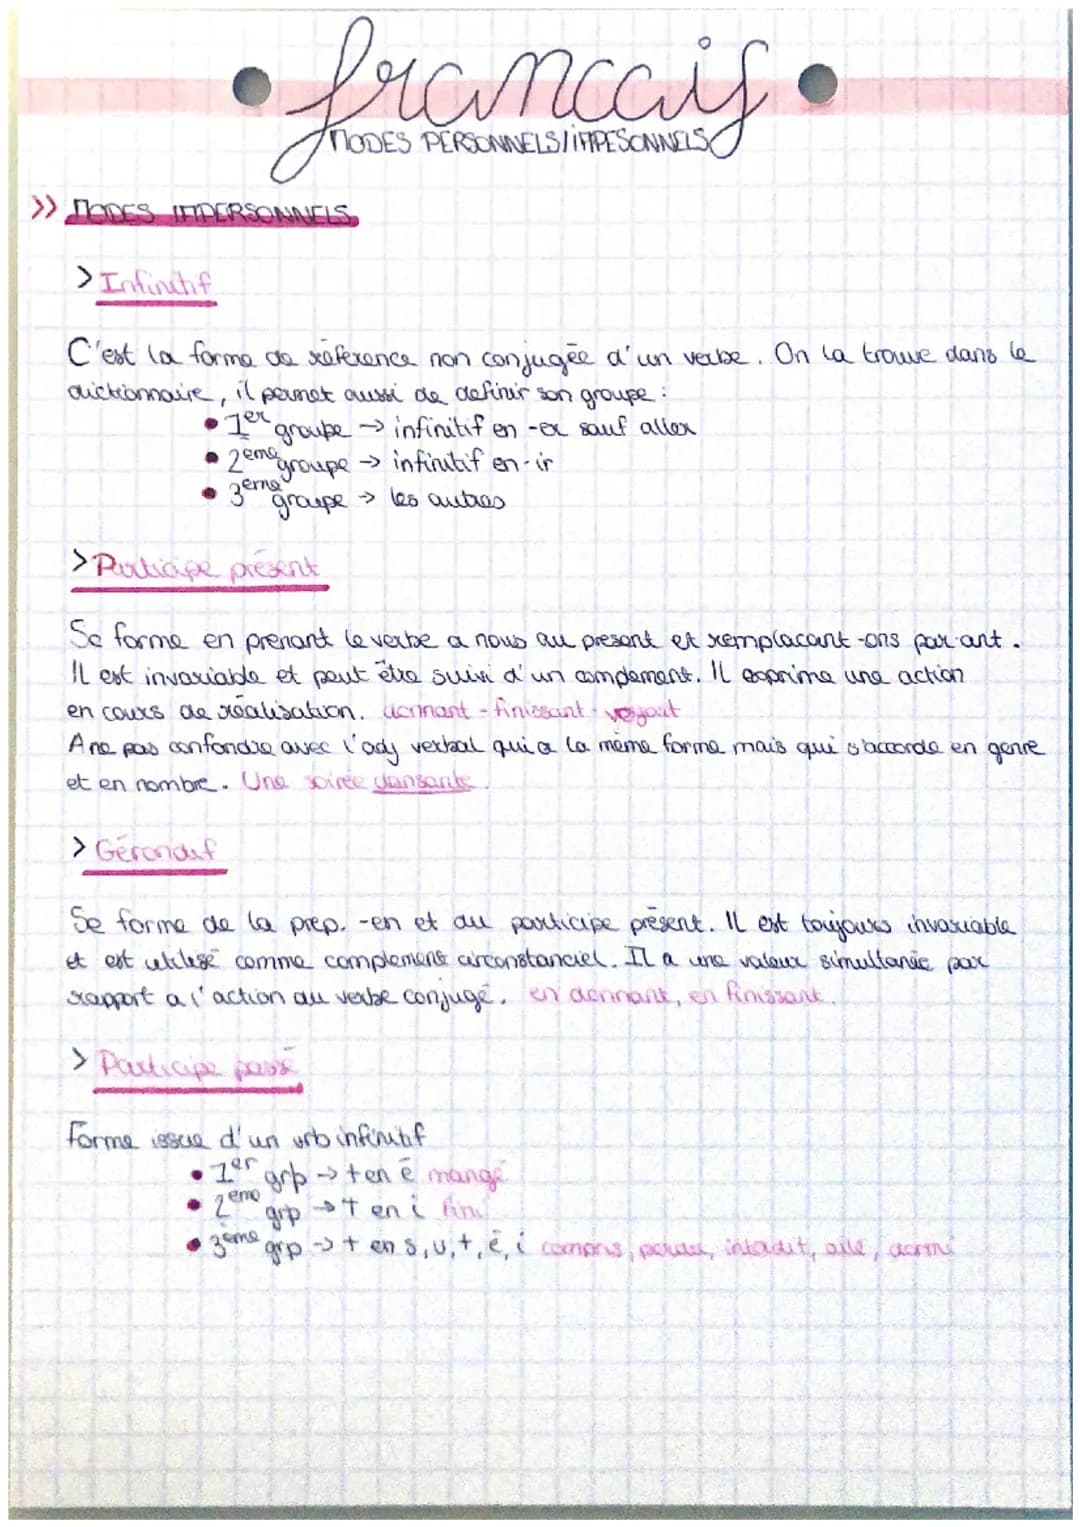 francais
MODES PERSONNELS/IMPESONNELS
>> MODES IMPERSONNELS
> Infinitif
C'est la forme de référence non conjugée d'un verbe. On la trouve dans le
dictionnaire, il permet aussi de definir son groupe :
• 1er groupe → infinitif en -er sauf aller
• 2ème groupe → infinitif en -ir
• 3eme groupe → les autres
> Participe présent
Se forme en prenant le verbe a nous au present et remplacant -ons par -ant.
Il est invariable et peut être suivi d'un complement. Il exprime une action
en cours de réalisation. donnant - finissant - voyant
A ne pas confondre avec l'adj verbal qui a la même forme mais qui s'accorde en genre
et en nombre. Une soirée dansante.
> Gérondif
Se forme de la prep. -en et du participe présent. Il est toujours invariable
et est utilisé comme complement circonstanciel. Il a une valeur simultanée par
rapport a l'action du verbe conjugé. en donnant, en finissant.
> Participe passé
Forme issue d'un vrb infinitif
• 1er grp → t en é mangé
• 2ème grp → t en i fini
• 3ème grp → t en s, u, t, é, i compris, perdu, interdit, allé, dormi